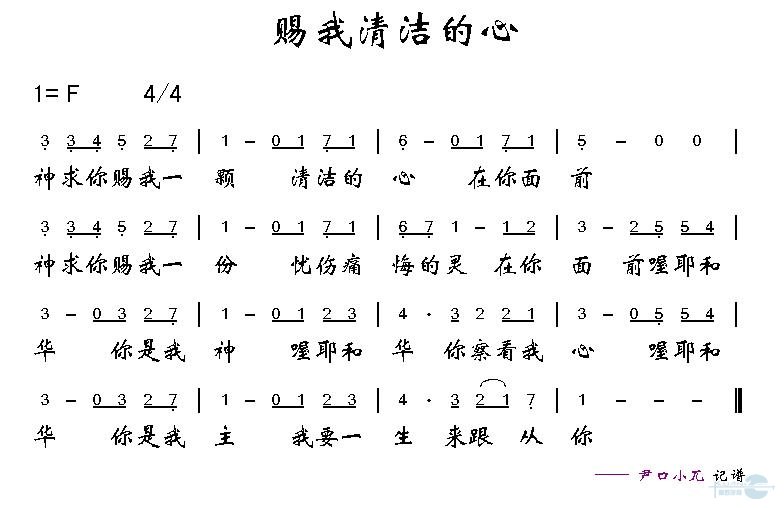 赐我清洁的心
1= F 4/4
3 3 4 5 2 7 | 1 - 0 1 7 1 | 6 - 0 1 7 1 | 5 - 0 0 |
神求你赐我一 颗 清洁的 心 在你面 前
3 3 4 5 2 7 | 1 - 0 1 7 1 | 6 7 1 - 1 2 | 3 - 2 5 5 4 |
神求你赐我一 份 忧伤痛 悔的灵 在你 面 前喔耶和
3 - 0 3 2 7 | 1 - 0 1 2 3 | 4 · 3 2 2 1 | 3 - 0 5 5 4 |
华 你是我 神 喔耶和 华 你察看我 心 喔耶和
3 - 0 3 2 7 | 1 - 0 1 2 3 | 4 · 3 2 1 7 | 1 - - - ‖
华 你是我 主 我要一 生 来跟 从 你
—— 尹口小兀 记谱